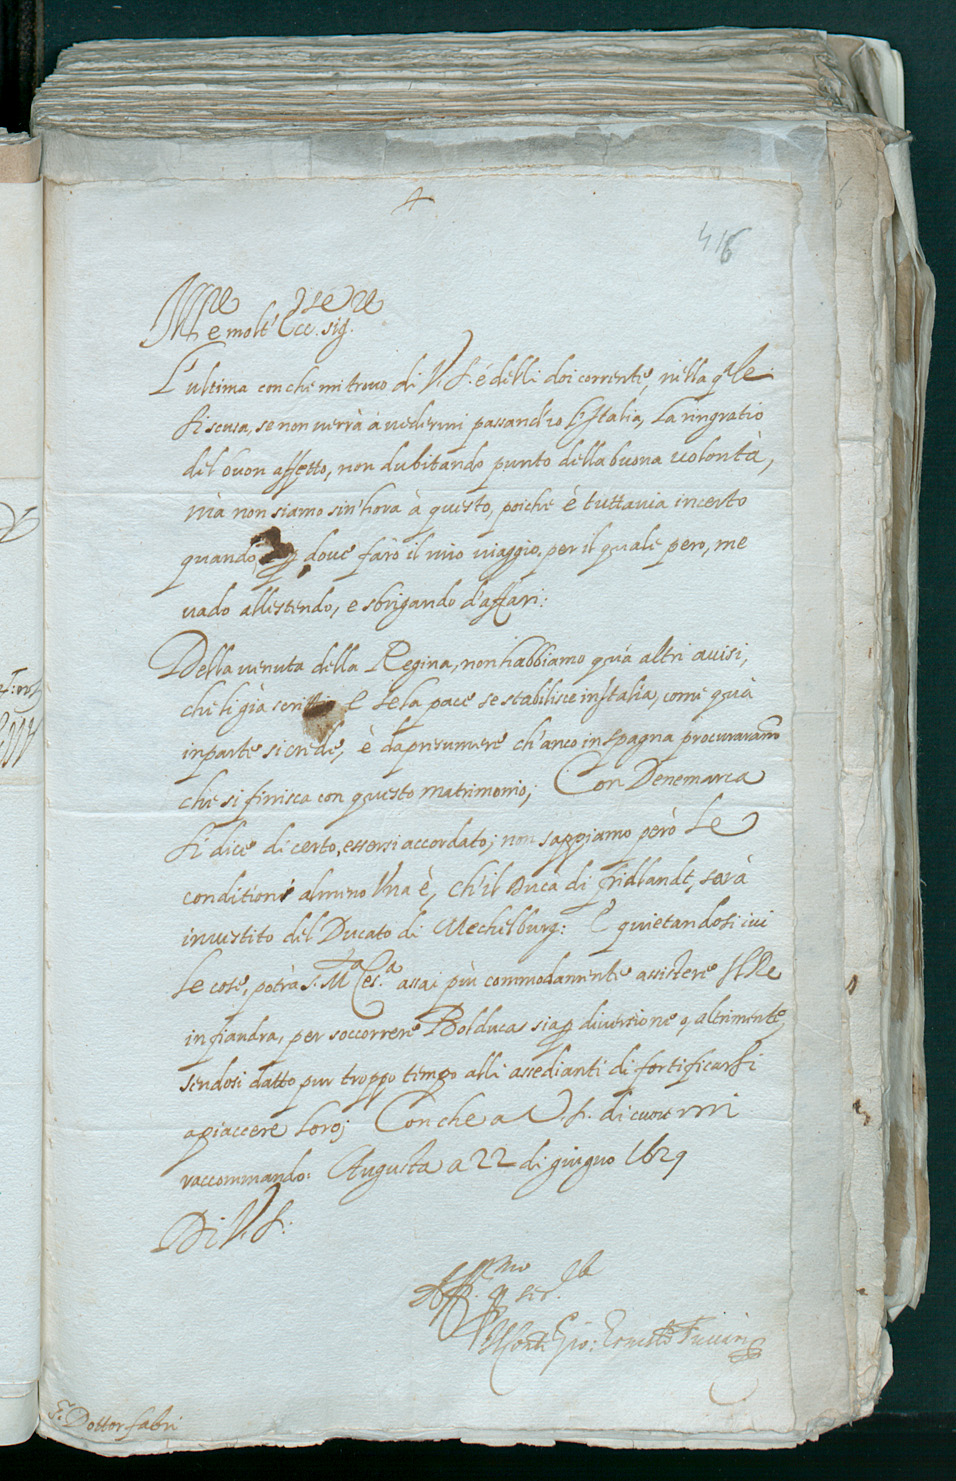 416
Ill.re e molt' Ecc.te Sig.re
L'ultima con che mi trovo di V.S. é delli doi corrente, nella q.le
si scusa, se non verrà à vedermi passand'io l'Italia, La ringratio
del buon affetto, non dubitando punto della buona volontà,
mà non siamo sin'hora à questo, poiche è tuttavia incerto
quando, e p dove farò il mio viaggio, per il quale pero, me
vado allestendo, e sbrigando d'affari:
Della venuta della Regina, non habbiamo quà altri avisi,
che li già scritti, E se la pace se stabilisce in Italia, come quà
in parte si crede, è da presumere ch'anco in Spagna procuraranno
che si finisca con questo matrimonio; Con Denemarca
si dice di certo, essersi accordato; non sappiamo però Le
conditioni almeno Una è, ch'il Duca di Fridlandt, sarà
investito del Ducato di Mechelburg: E quietandosi ivi
Le cose, potrà S. M.tà Ces.a assai più commodamente assistere
in fiandra, per soccorrere Bolduca sia p diversione o, altrimente,
sendosi datto pur troppo tempo alli assedianti di fortificarsi
a piaccere loro; Con che a V.S. di cuore mi
raccommando: Augusta a 22 di giugno 1629
Di V.S.
Aff.mo p ser.
Il Conte Gio: Ernesto Fuccari
S.r Dottor fabri